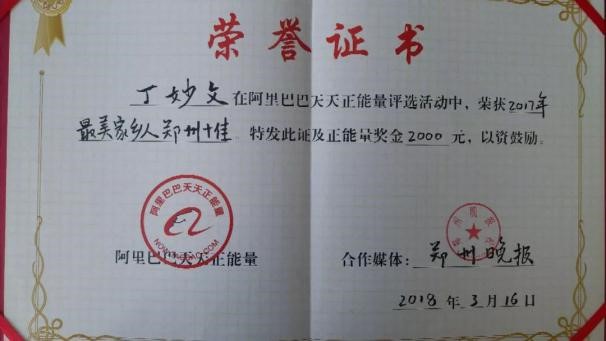 荣誉证书
丁妙文在阿里巴巴天天正能量评选活动中，荣获2017年
最美家乡人郑州十佳 特发此证及正能量奖金2000元，以资鼓励。
阿里巴巴天天正能量
阿里巴巴天天正能量 合作媒体：郑州晚报
2018年3月16日